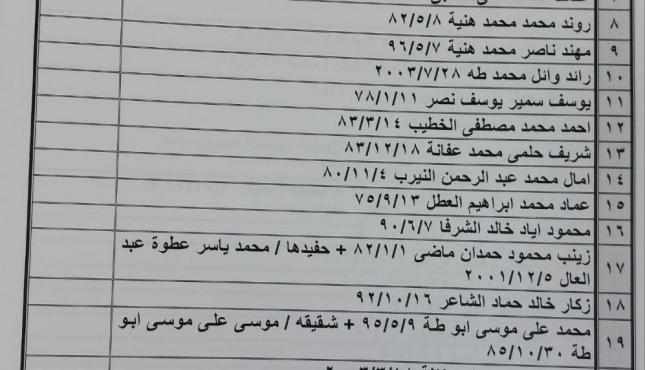 ٨ روند محمد محمد هنية ٨٢/٥/٨
٩ مهند ناصر محمد هنية ٩٦/٥/٧
١٠ رائد وائل محمد طه ٢٠٠٣/٧/٢٨
١١ يوسف سمير يوسف نصر ٧٨/١/١١
١٢ احمد محمد مصطفى الخطيب ٨٣/٣/١٤
١٣ شريف حلمى محمد عفانة ٨٣/١٢/١٨
١٤ امال محمد عبد الرحمن النيرب ٨٠/١١/٤
١٥ عماد محمد ابراهيم العطل ٧٥/٩/١٣
١٦ محمود اياد خالد الشرفا ٩٠/٦/٧
١٧ زينب محمود حمدان ماضى ٨٢/١/١ + حفيدها / محمد ياسر عطوة عبد
العال ٢٠٠١/١٢/٥
١٨ زكار خالد حماد الشاعر ٩٢/١٠/١٦
١٩ محمد على موسى ابو طة ٩٥/٥/٩ + شقيقه / موسى على موسى ابو
طة ٨٥/١٠/٣٠